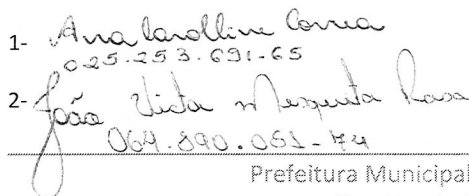 1- Ana Carolline Correa
025.253.691-65
2- João Victor Mesquita Rosa
064.890.051-74
Prefeitura Municipal